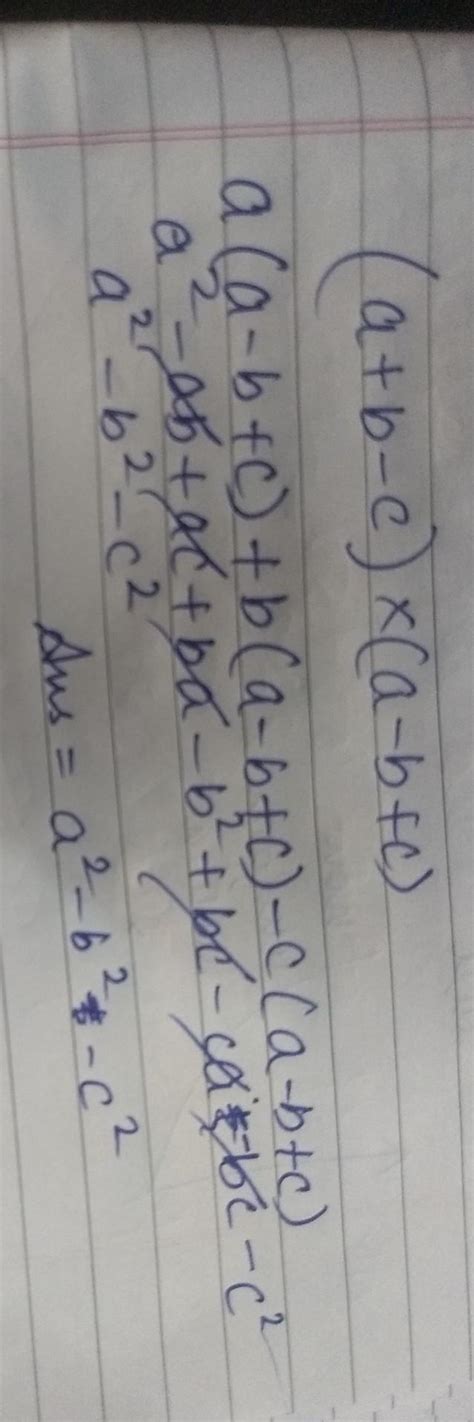 (a+b-c)×(a-b+c)
a(a-b+c)+b(a-b+c)-c(a-b+c)
a²-ab+ac+ba-b²+bc-ca-bc-c²
a²-b²-c²
Ans = a²-b²-c²